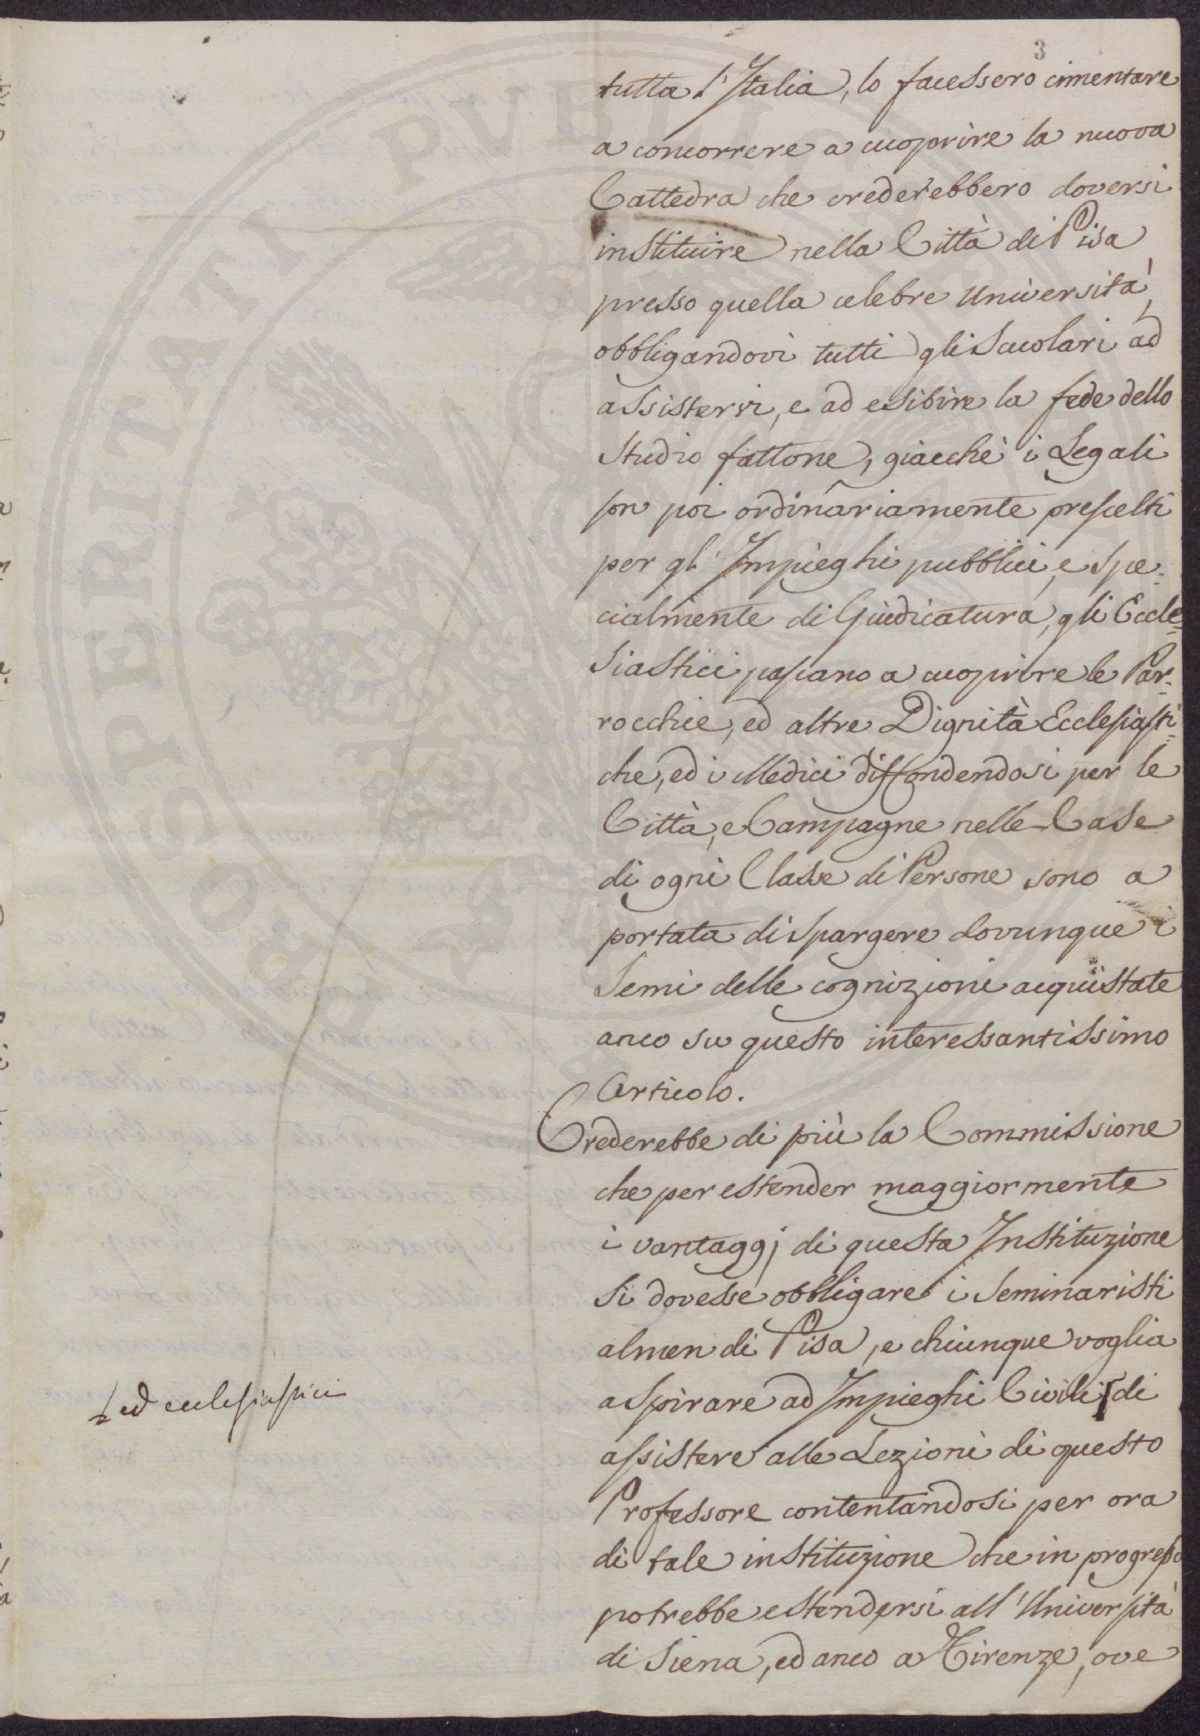 3
tutta l'Italia, lo facessero cimentare
a concorrere a cuoprire la nuova
Cattedra che crederebbero doversi
instituire nella Città di Pisa
presso quella celebre Università,
obbligandovi tutti gli Scuolari ad
assistervi, e ad esibire la fede dello
Studio fattone, giacchè i Legali
son poi ordinariamente prescelti
per gl'Impieghi pubblici, e spe-
cialmente di Giudicatura, gli Eccle-
siastici passano a cuoprire le Par-
rocchie, ed altre Dignità Ecclesiasti-
che, ed i Medici diffondendosi per le
Città, e Campagne nelle Case
di ogni Classe di Persone sono a
portata di spargere dovunque i
Semi delle cognizioni acquistate
anco su questo interessantissimo
Articolo.
Crederebbe di più la Commissione
che per estender maggiormente
i vantaggj di questa Instituzione
si dovesse obbligare i Seminaristi
almen di Pisa, e chiunque voglia
aspirare ad Impieghi Civili di
ed ecclesiastici
assistere alle Lezioni di questo
Professore contentandosi per ora
di tale instituzione che in progresso
potrebbe estendersi all'Università
di Siena, ed anco a Firenze, ove
PROSPERITATI PVBLICAE